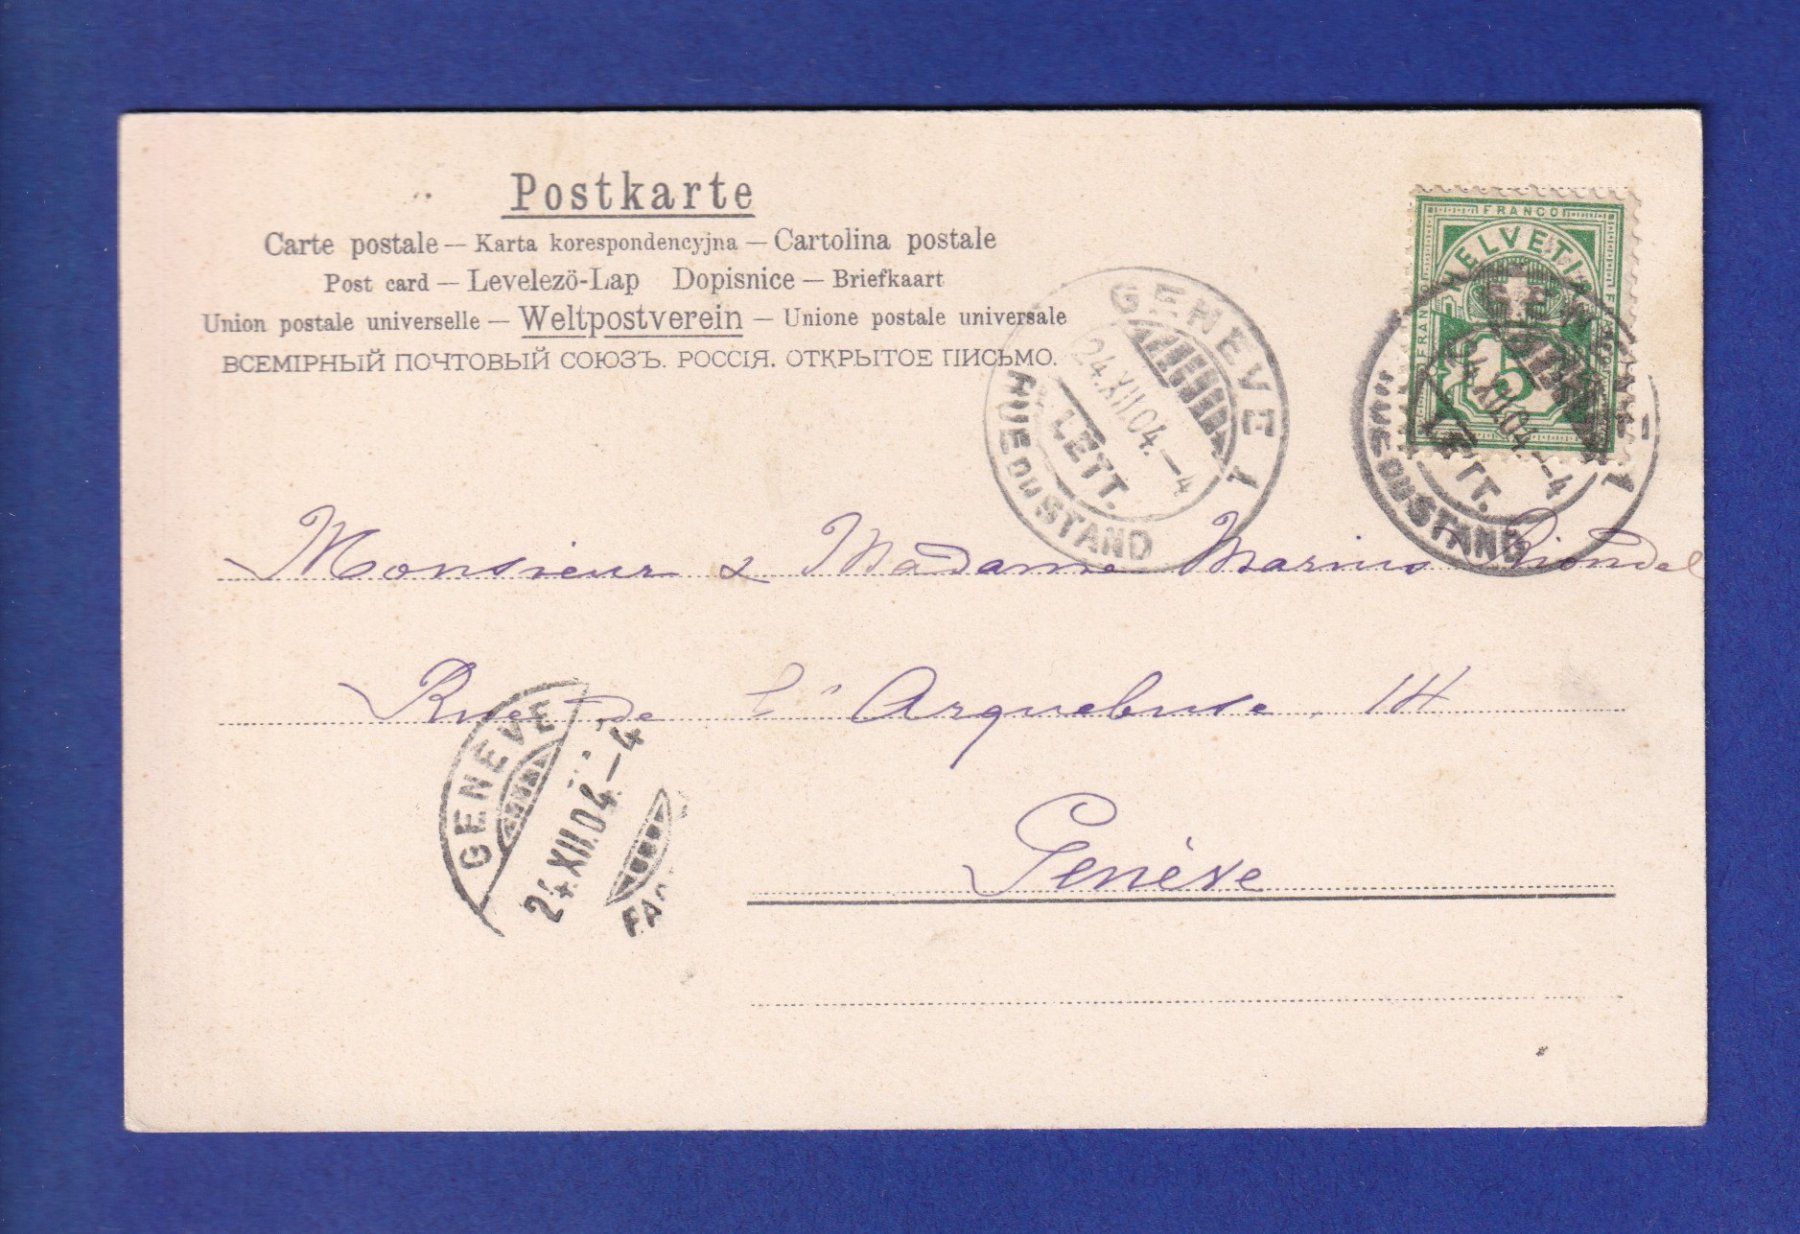 Postkarte
Carte postale — Karta korespondencyjna — Cartolina postale
Post card — Levelezö-Lap Dopisnice — Briefkaart
Union postale universelle — Weltpostverein — Unione postale universale
ВСЕМІРНЫЙ ПОЧТОВЫЙ СОЮЗЪ. РОССІЯ. ОТКРЫТОЕ ПИСЬМО.
FRANCO
HELVETIA
FRANCO
5
GENÈVE 1
24.XII.04.–4
LETT.
RUE DU STAND
1
24.XII.04.–4
LETT.
RUE DU STAND
Monsieur & Madame Marius Riondel
Rue de l'Arquebuse. 14
Genève
GENÈVE
24.XII.04.–4